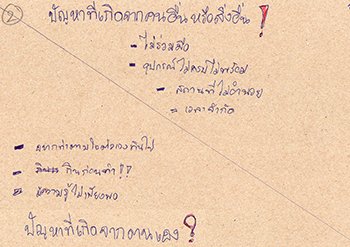 2 ปัญหาที่เกิดจากคนอื่น หรือสิ่งอื่น !
- ไม่ร่วมมือ
- อุปกรณ์ไม่ครบไม่พร้อม
- สถานที่ไม่อำนวย
- เวลาจำกัด
- อยากทำตามใจตัวเองเกินไป
- กินก่อนทำ !!
- ความรู้ไม่เพียงพอ
ปัญหาที่เกิดจากตนเอง ?